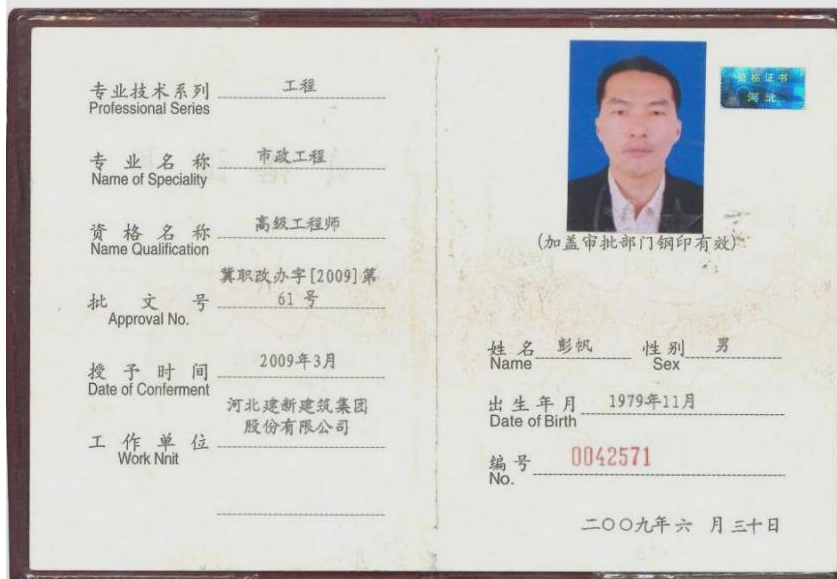 专业技术系列 工程
Professional Series
专业名称 市政工程
Name of Speciality
资格名称 高级工程师
Name Qualification
冀职改办字[2009]第
批文号 61 号
Approval No.
授予时间 2009年3月
Date of Conferment
河北建新建筑集团
股份有限公司
工作单位
Work Nnit
资格证书
河北
(加盖审批部门钢印有效)
姓名 彭帆 性别 男
Name Sex
出生年月 1979年11月
Date of Birth
编号 0042571
No.
二〇〇九年六 月三十日